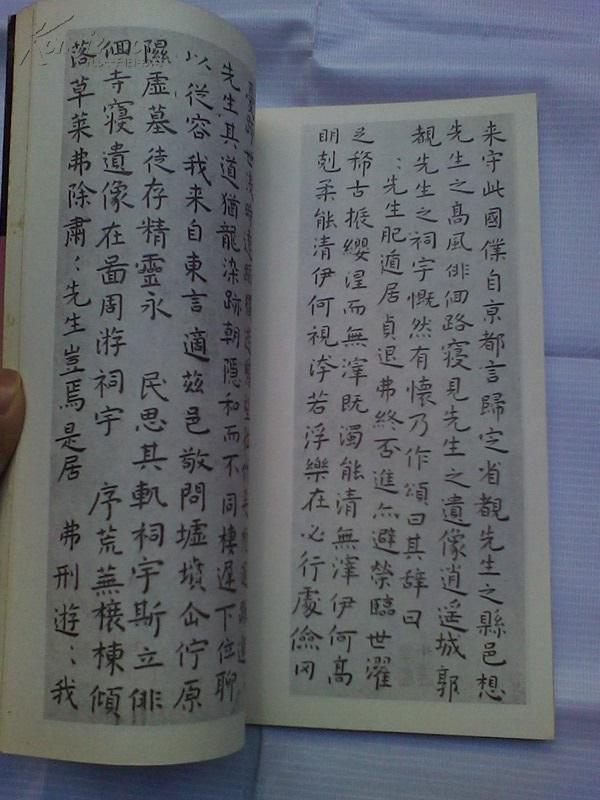 来守此國僕自京都言歸定省覩先生之縣邑想
先生之髙風俳佪路寢見先生之遺像逍遥城郭
覩先生之祠宇慨然有懷乃作頌曰其辞曰
：先生肥遁居貞退弗終否進亦避榮臨世濯
足稀古振纓涅而無滓既濁能清無滓伊何髙
明剋柔能清伊何視汙若浮樂在必行處儉罔
先生其道猶龍染跡朝隱和而不同棲遲下位聊
以從容我来自東言適兹邑敬問墟墳企佇原
隰虛墓徒存精靈永 民思其軌祠宇斯立俳
佪寺寢遺像在啚周游祠宇 序荒蕪榱棟傾
落草莱弗除肅：先生豈焉是居 弗刑遊：我